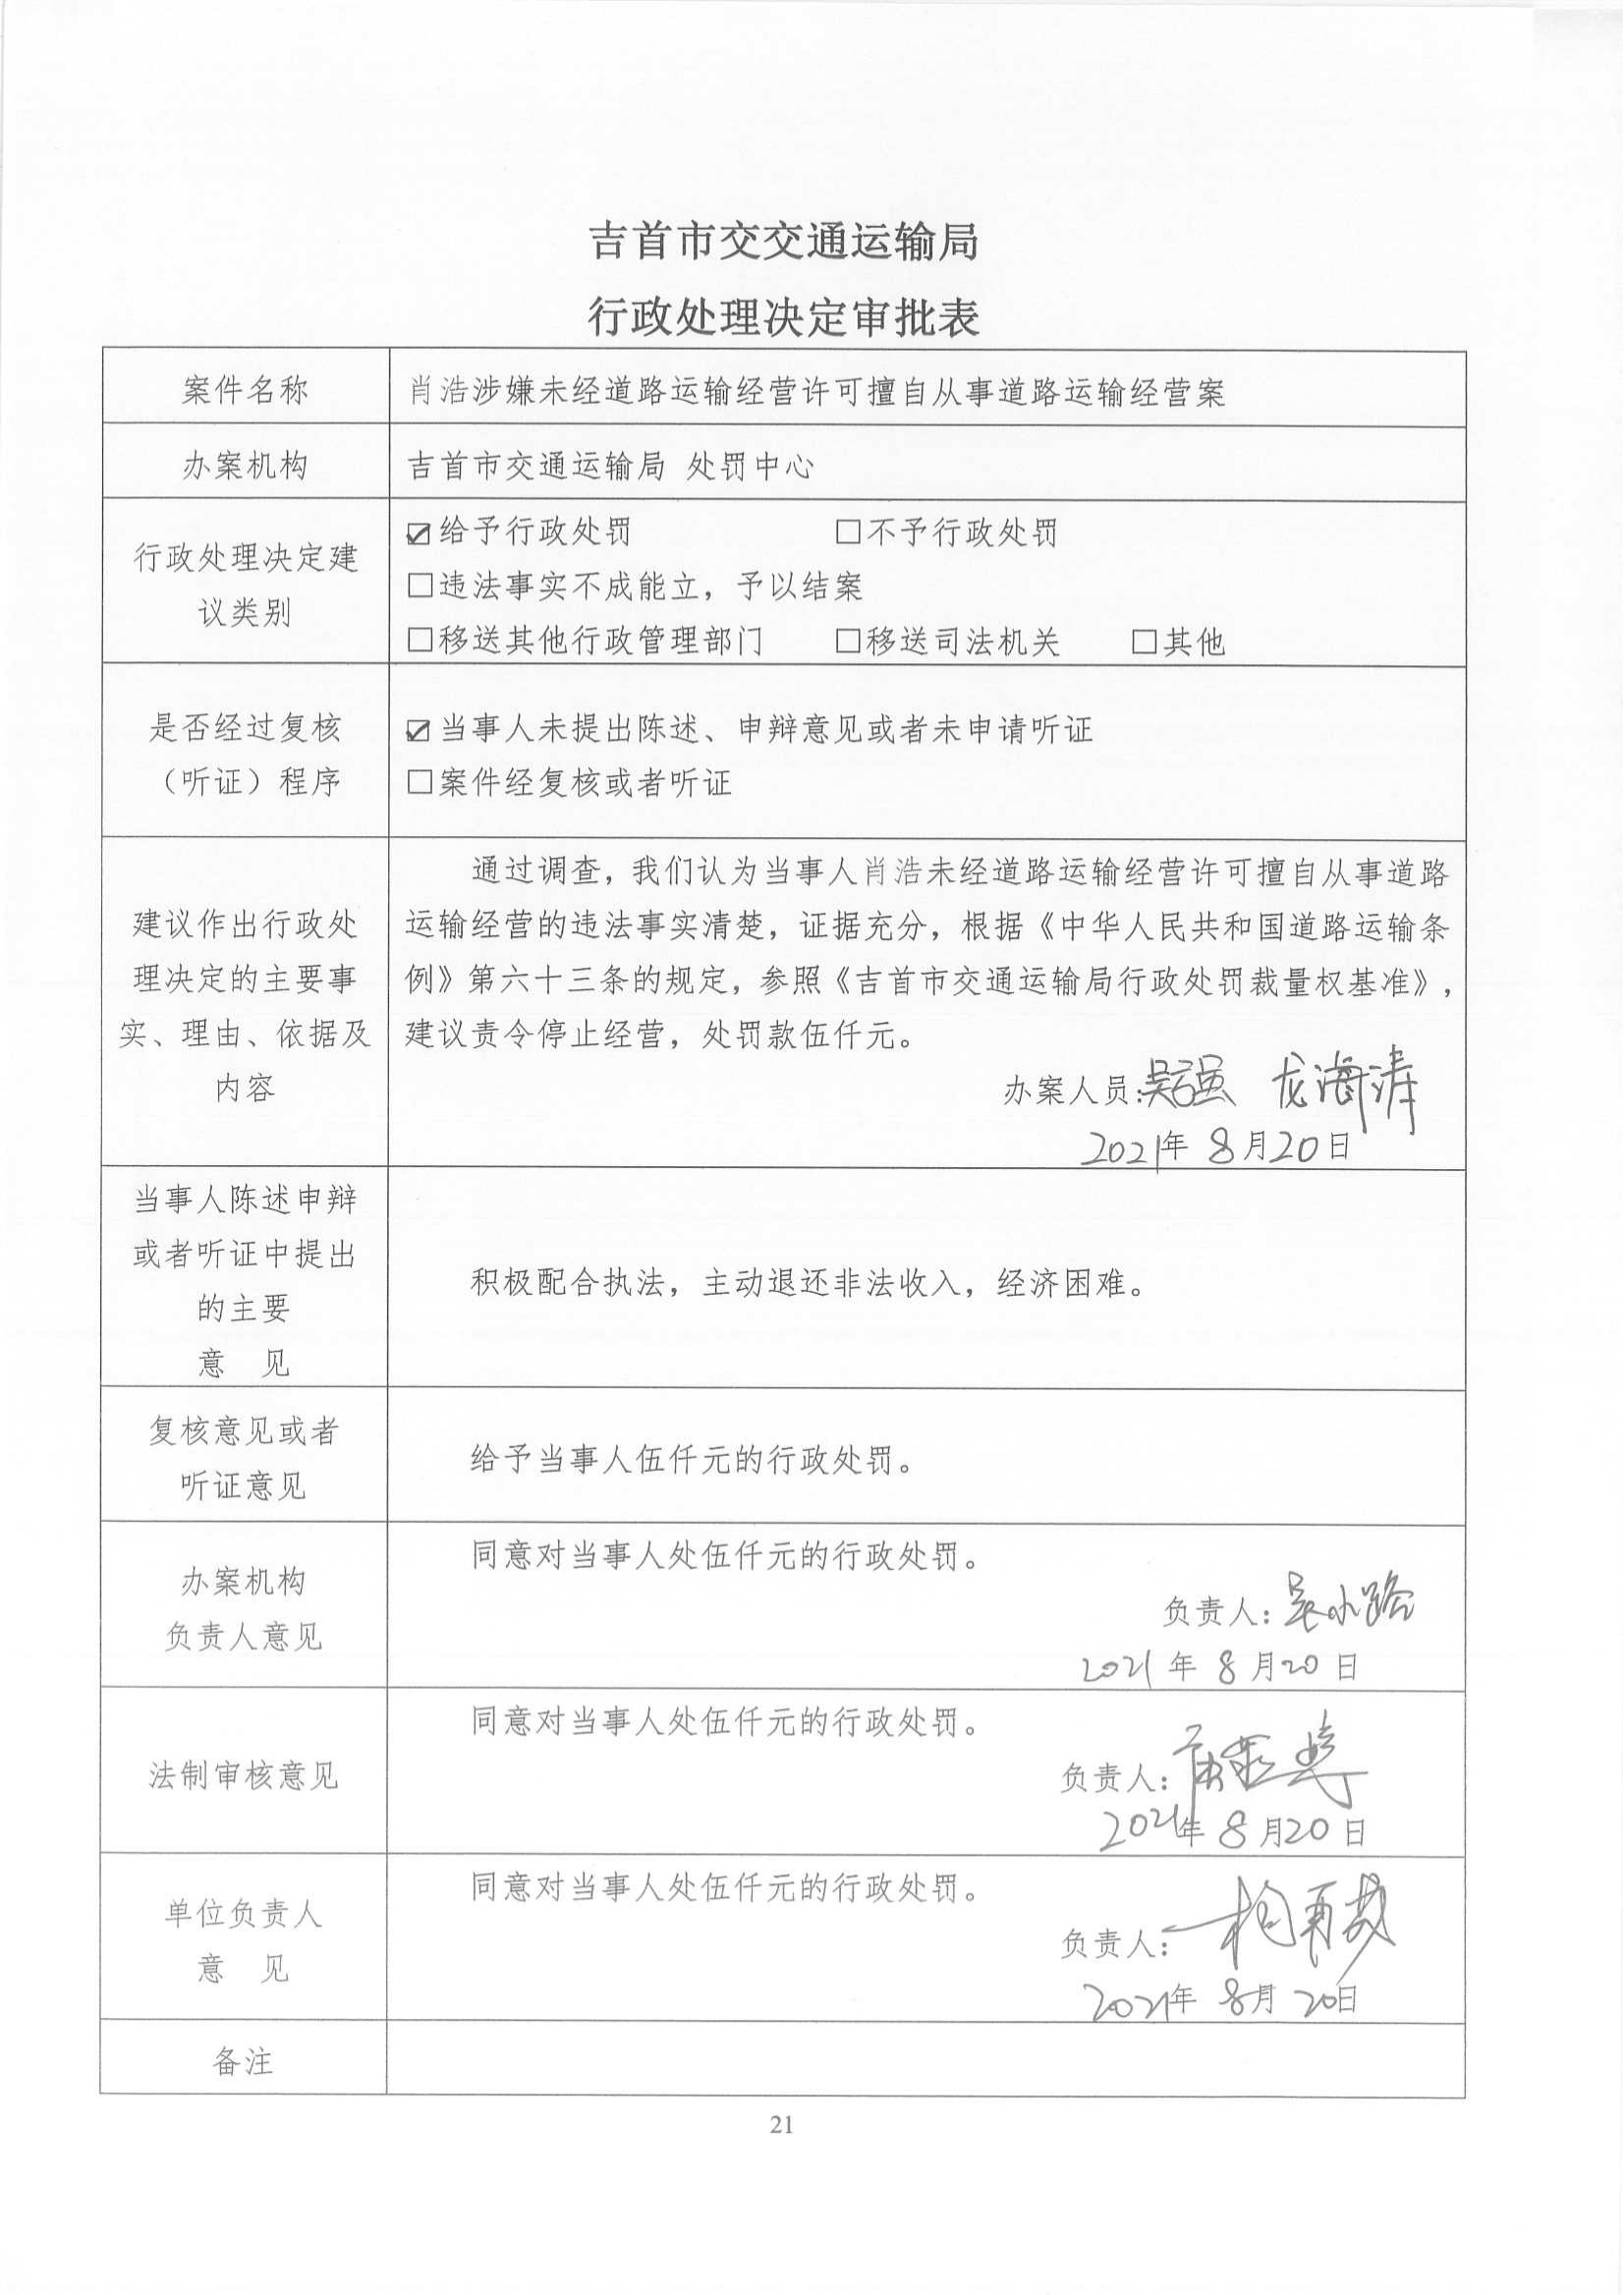 吉首市交交通运输局
行政处理决定审批表
案件名称
肖浩涉嫌未经道路运输经营许可擅自从事道路运输经营案
办案机构
吉首市交通运输局 处罚中心
行政处理决定建
议类别
☑给予行政处罚 □不予行政处罚
□违法事实不成能立，予以结案
□移送其他行政管理部门 □移送司法机关 □其他
是否经过复核
（听证）程序
☑当事人未提出陈述、申辩意见或者未申请听证
□案件经复核或者听证
建议作出行政处
理决定的主要事
实、理由、依据及
内容
通过调查，我们认为当事人肖浩未经道路运输经营许可擅自从事道路
运输经营的违法事实清楚，证据充分，根据《中华人民共和国道路运输条
例》第六十三条的规定，参照《吉首市交通运输局行政处罚裁量权基准》，
建议责令停止经营，处罚款伍仟元。
办案人员：龙海涛
2021年 8月20日
当事人陈述申辩
或者听证中提出
的主要
意 见
积极配合执法，主动退还非法收入，经济困难。
复核意见或者
听证意见
给予当事人伍仟元的行政处罚。
办案机构
负责人意见
同意对当事人处伍仟元的行政处罚。
负责人：
2021年 8月20日
法制审核意见
同意对当事人处伍仟元的行政处罚。
负责人：
2021年 8月20日
单位负责人
意 见
同意对当事人处伍仟元的行政处罚。
负责人：
2021年 8月20日
备注
21